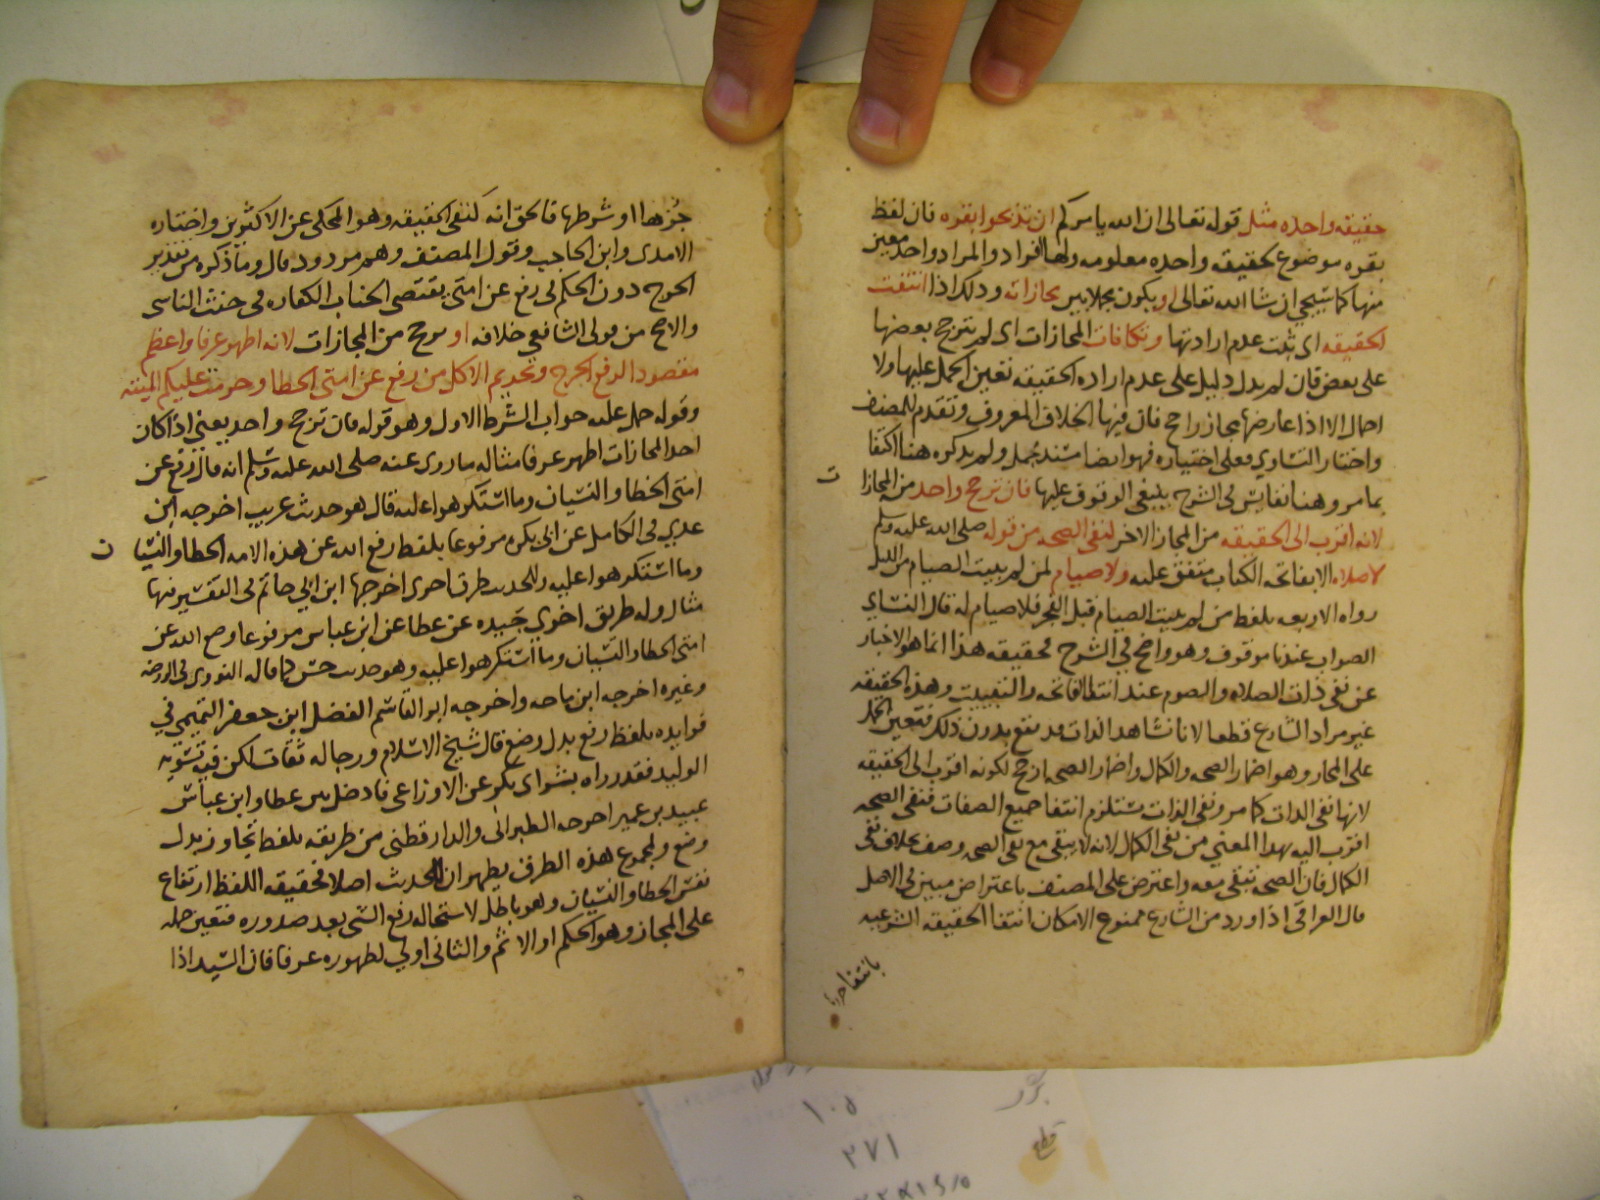 حقيقه واحده مثل قوله تعالى ان الله يامركم ان تذبحوا بقره فان لفظ
بقره موضوع لحقيقه واحده معلومه ولها افراد والمراد واحد معين
منها كما سيجي ان شا الله تعالى او يكون مجملا بين مجازاته وذلك اذا انتفت
الحقيقه اى ثبت عدم ارادتها وتكافات المجازات اى لم يترجح بعضها
على بعض فان لم يدل دليل على عدم اراده الحقيقه تعين الحمل عليها ولا
اجمال الا اذا عارضها مجاز راجح فان فيها الخلاف المعروف وتقدم للمصنف
واختار التساوي فعلى اختياره فهو ايضا مجمل ولم يذكره هنا اكتفا
بما مر وهنا نفايس في الشرح ينبغي الوقوف عليها فان ترجح واحد من المجازا
ت
لانه اقرب الى الحقيقه من المجاز الاخر لنفي الصحه من قوله صلى الله عليه وسلم
لا صلاه الا بفاتحه الكتاب متفق عليه ولا صيام لمن لم يبيت الصيام من الليل
رواه الاربعه بلفظ من لم يبيت الصيام قبل الفجر فلا صيام له قال النساي
الصواب عندنا موقوف وهو واضح في الشرح فحقيقه هذا انما هو الاخبار
عن نفي ذات الصلاه والصوم عند انتفا الفاتحه والتبييت وهذه الحقيقه
غير مراد الشارع قطعا لانا نشاهد الذات قد تقع بدون ذلك فتعين الحمل
على المجاز وهو اضمار الصحه والكمال واضمار الصحه ارجح لكونه اقرب الى الحقيقه
لانها نفي الذات كما مر ونفي الذات يستلزم انتفا جميع الصفات فنفي الصحه
اقرب اليه بهذا المعني من نفي الكمال لانه لا يبقى مع نفي الصحه وصف بخلاف نفي
الكمال فان الصحه تبقى معه واعترض على المصنف باعتراض مبين في الاصل
قال العراقي اذا ورد من الشارع ممنوع الامكان انتفا الحقيقه الشرعيه
بانتفا جزء
جزها او شرطها فالحق انه لنفي الحقيقه وهو المحكى عن الاكثرين واختاره
الامدى وابن الحاجب وقول المصنف وهم مردود قال وما ذكره من تقدير
الحرج دون الحكم في رفع عن امتى يقتضى ايجاب الكفاره في حنث الناسى
والاصح من قولى الشافعي خلافه او رجح من المجازات لانه اظهر عرفا او اعظم
مقصودا لرفع الحرج وتحريم الاكل من رفع عن امتى الخطا وحرمت عليكم الميته
وقوله حمل عليه جواب الشرط الاول وهو قوله فان ترجح واحد يعني اذا كان
احد المجازات اظهر عرفا مثاله ما روى عنه صلى الله عليه وسلم انه قال رفع عن
امتى الخطا والنسيان وما استكرهوا عليه قال هو حديث غريب اخرجه ابن
عدي في الكامل عن ابى بكره مرفوعا بلفظ رفع الله عن هذه الامه الخطا والنسيا
ن
وما استكرهوا عليه وللحديث طرق اخرى اخرجها ابن ابي حاتم في التفسير منها
مثال وله طريق اخرى جيده عن عطا عن ابن عباس مرفوعا وضع الله عن
امتى الخطا والنسيان وما استكرهوا عليه وهو حديث حسن كما قاله النووى في الروضه
وغيره اخرجه ابن ماجه واخرجه ابو القاسم الفضل ابن جعفر التميمي في
فوايده بلفظ رفع بدل وضع قال شيخ الاسلام ورجاله ثقات لكن فيه تسويه
الوليد فقد رواه بشر بن بكر عن الاوزاعى فادخل بين عطا وابن عباس
عبيد بن عمير اخرجه الطبرانى والدارقطنى من طريقه بلفظ تجاوز بدل
وضع ولمجموع هذه الطرق يظهر ان للحديث اصلا فحقيقه اللفظ ارتفاع
نفس الخطا والنسيان وهو باطل لاستحاله رفع الشى بعد صدوره فتعين حمله
على المجاز وهو الحكم او الاثم والثانى اولى لظهوره عرفا فان السيد اذا
١٠٥
٢٧١
قطع